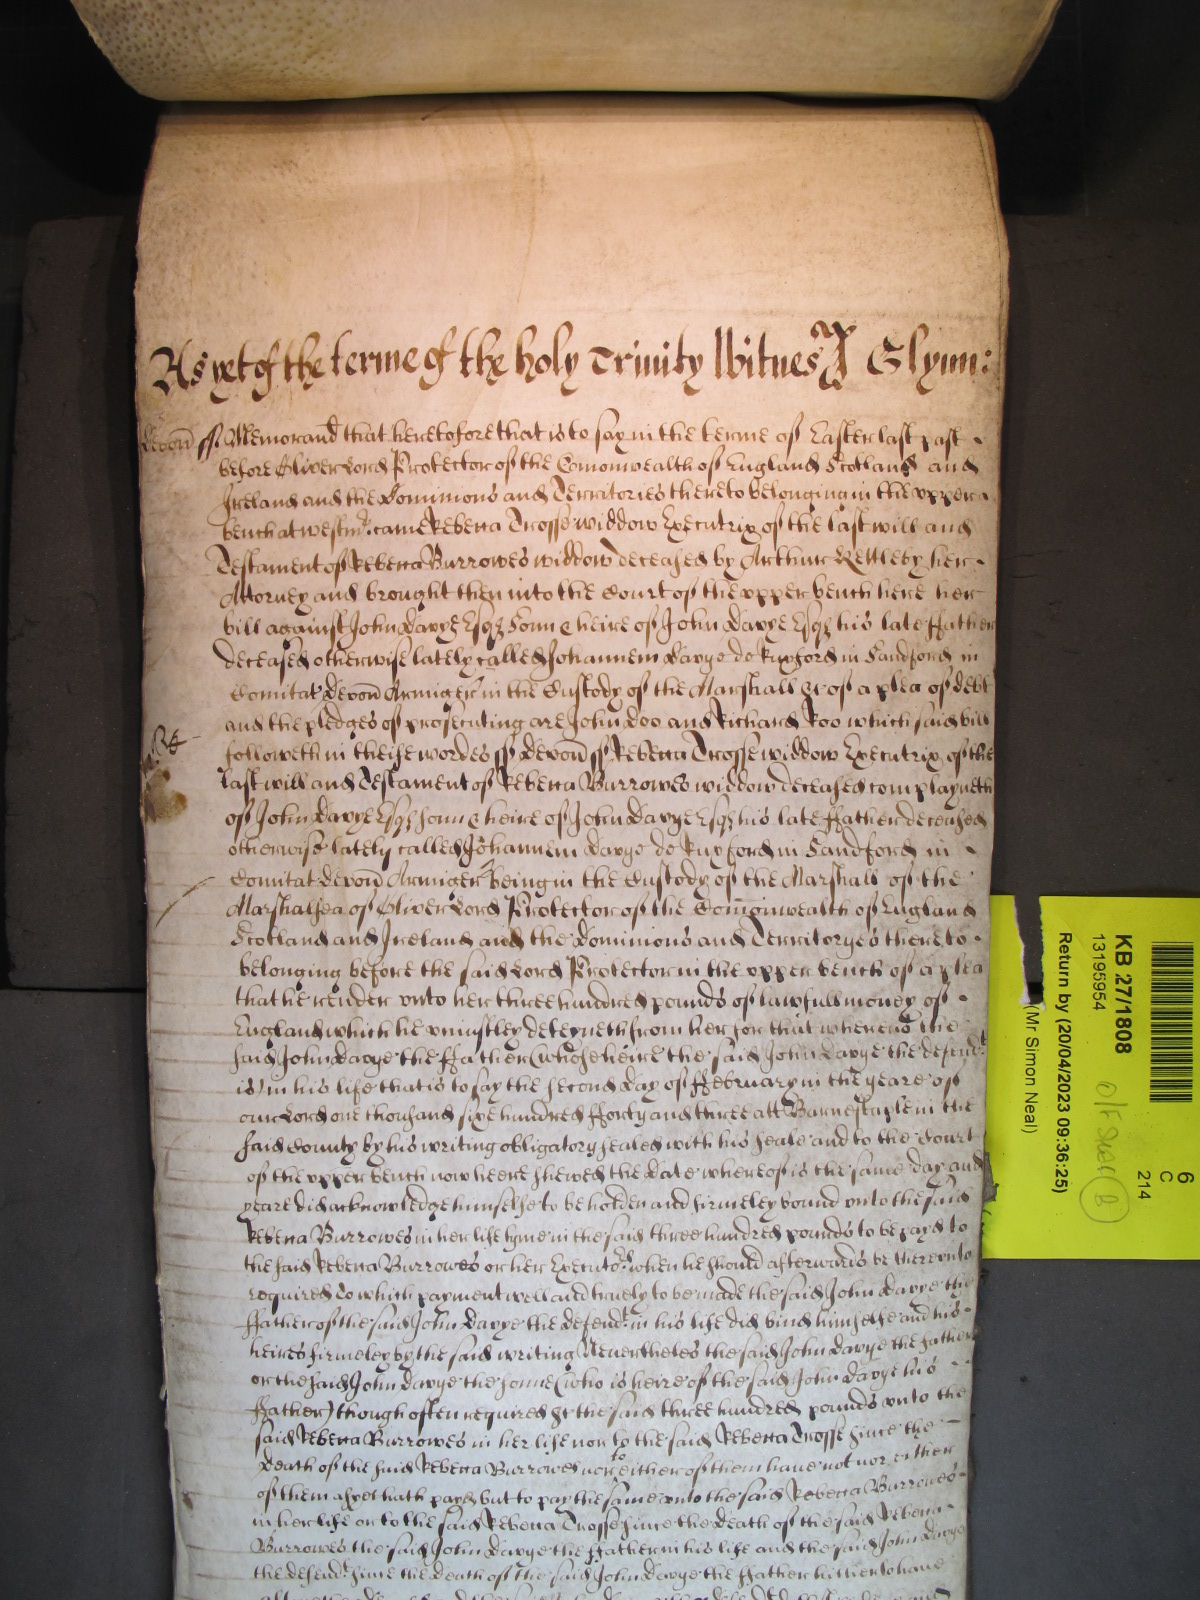 As yet of the terme of the holy Trinity Witnes J Glynn:
Devon ss Memorand that heretofore that is to say in the terme of Easter last past
before Oliver Lord Protector of the Comonwealth of England Scotland and
Ireland and the Dominions and Territories thereto belonging in the upper
bench at westmr. came Rebecca Trosse widdow Executrix of the last will and
Testament of Rebecca Burrowes widdow deceased by Arthur Kettleby her
Attorney and brought then into the Court of the upper bench here her
bill against John Davye Esqr Sonn & heire of John Davye Esqr his late ffather
deceased otherwise lately called Johannem Davye de Ruxford in Sandford in
Comitat Devon Armiger in the Custody of the Marshall &c of a plea of debt
and the pledges of prosecuting are John Doo and Richard Roo which said bill
followeth in theise wordes ss Devon ss Rebecca Trosse widdow Executrix of the
last will and Testament of Rebecca Burrowes widdow deceased complayneth
of John Davye Esqr sonn & heire of John Davye Esqr his late ffather deceased
otherwise lately called Johannem Davye de Ruxford in Sandford in
Comitat Devon Armiger being in the Custody of the Marshall of the
Marshalsea of Oliver Lord Protector of the Comonwealth of England
Scotland and Ireland and the Dominions and Territoryes thereto
belonging before the said Lord Protector in the upper bench of a plea
that he render unto her three hundred pounds of lawfull money of
England which he uniustley deteyneth from her for that whereas the
said John Davye the ffather (whose heire the said John Davye the defendt.
is) in his life that is to say the second day of ffebruary in the yeare of
our Lord one thousand sixe hundred fforty and three att Barnestaple in the
said County by his writing obligatory sealed with his seale and to the Court
of the upper bench now heere shewed the date whereof is the same day and
yeare did acknowledge himselfe to be holden and firmeley bound unto the said
Rebecca Burrowes in her life tyme in the said three hundred pounds to be payd to
the said Rebecca Burrowes or her Executors. when he should afterwards be thereunto
required To which payment well and truely to be made the said John Davye the
ffather of the said John Davye the defendt. in his life did bind himselfe and his
heires firmeley by the said writing Neverthelesse the said John Davye the father
or the said John Davye the sonne (who is heire of the said John Davye his
ffather) though often required &c the said three hundred pounds unto the
said Rebecca Burrowes in her life nor to the said Rebecca Trosse since the
death of the said Rebecca Burrowes nor to either of them have not nor either
of them as yet hath payd but to pay the same unto the said Rebecca Burrowes
in her life or to the said Rebecca Trosse since the death of the said Rebecca
Burrowes the said John Davye the ffather in his life and the said John Davye
the defendt. since the death of the said John Davye the ffather hitherto have
KB 27/1808
13195954
Return by (20/04/2023 09:36:25)
(Mr Simon Neal)
6
C
214
B